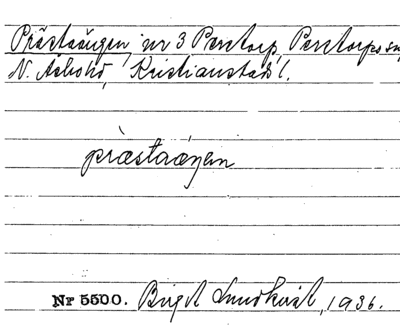 Prästaängen, nr 3 Perstorp, Perstorps sn,
N. Åsbo hd, Kristianstads l.
præstaæŋen
Nr 5500. Birgit Lundkvist, 1936.